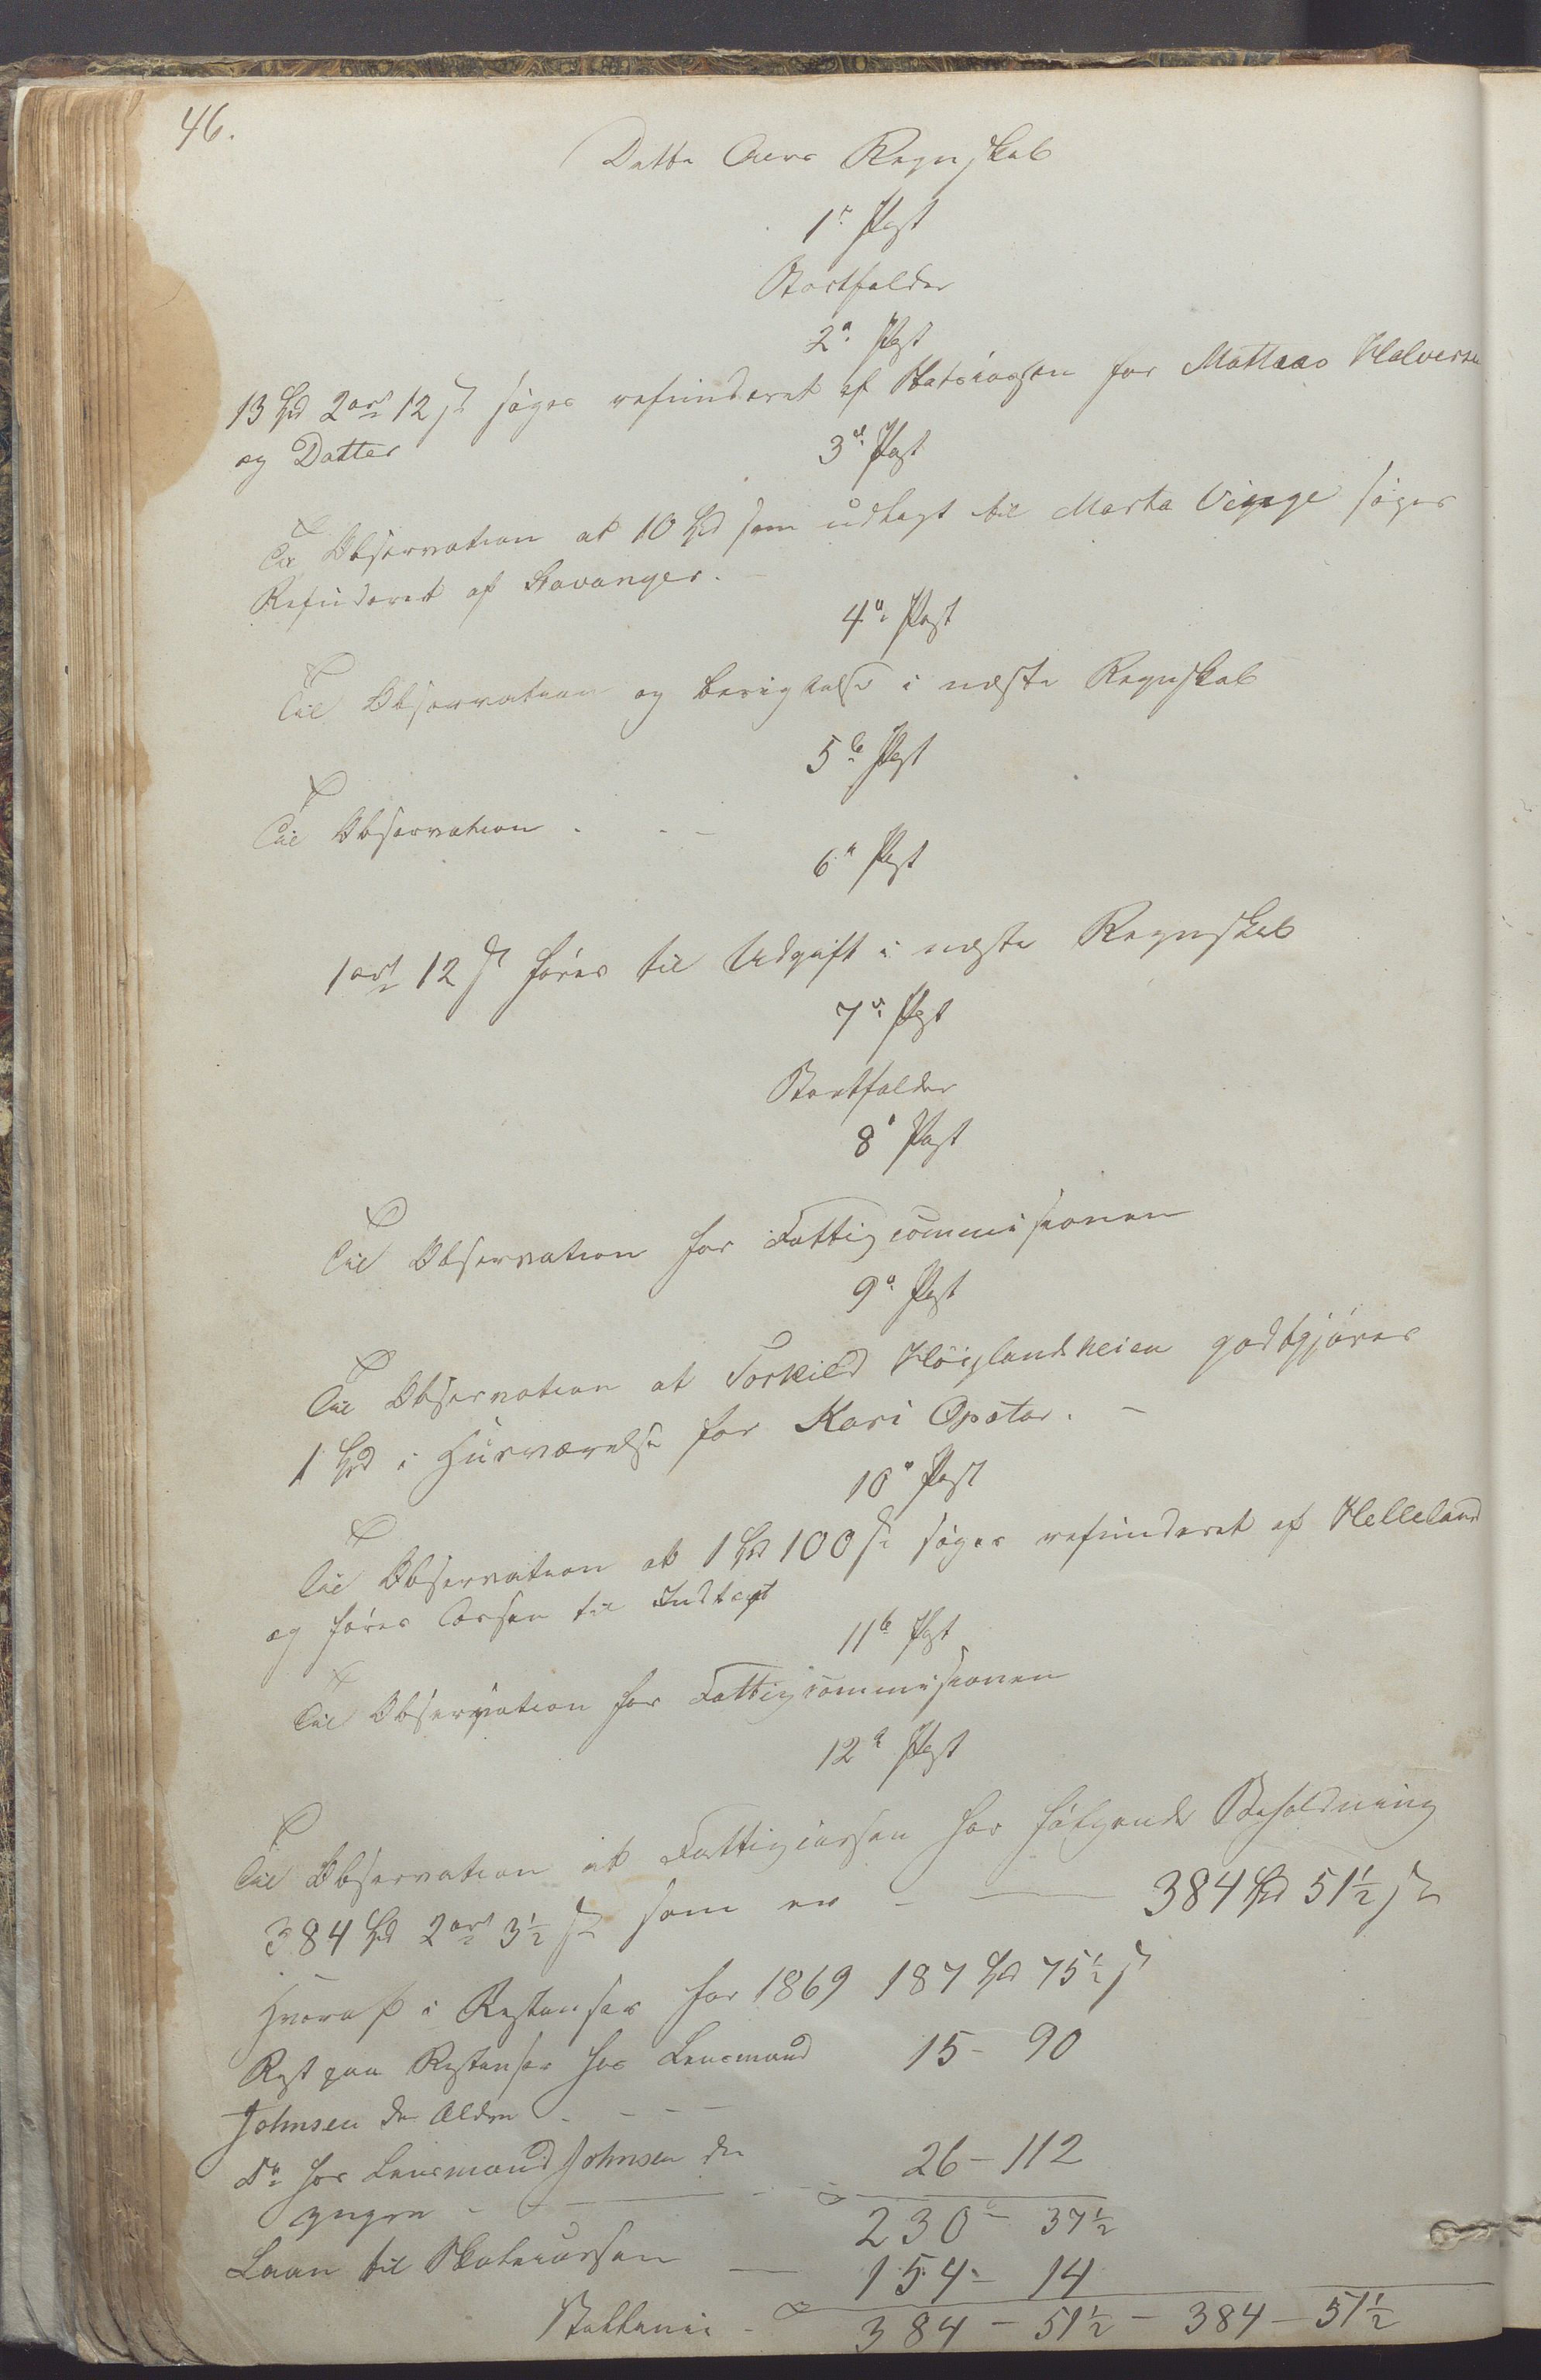 46.
Dette Aars Regnskab
1e Post
Bortfalder
2n Post
13 Spd 2 ort 12 s søges refunderet af Statscassen for Mattias Halversen
og Datter
3die Post
Til Observation at 10 Spd som udlagt til Marta Vigge søges
Refunderet af Stavanger. -
4de Post
Til Observation og berigtelse i neste Regnskab
5te Post
Til Observation . - -
6te Post
1 ort 12 s føres til Udgift i neste Regnskab
7de Post
Bortfalder
8de Post
Til Observation for Fattigcommisionen
9de Post
Til Observation at Torkild Høiglandsheien godtgjøres
1 Spd i Husværelse for Kari Opstar. -
10de Post
Til Observation at 1 Spd 100 s søges refunderet af Helleland
og føres Cassen til Indtægt
11te Post
Til Observation for Fattigcommisionen
12te Post
Til Observation at Fattigcassen har følgende Beholdning
384 Spd 2 ort 3½ s som er - — 384 Spd 51½ s
Hvoraf i Restanser for 1869 187 Spd 75½ s
Rest paa Restanser hos Lensmand 15 - 90
Johnsen den Ældre . - - -
Do hos Lensmand Johnsen den 26 - 112
yngre - - —
230 - 37½
Laan til Skolecassen — 154 - 14
Ballanse - 384 - 51½ - 384 - 51½